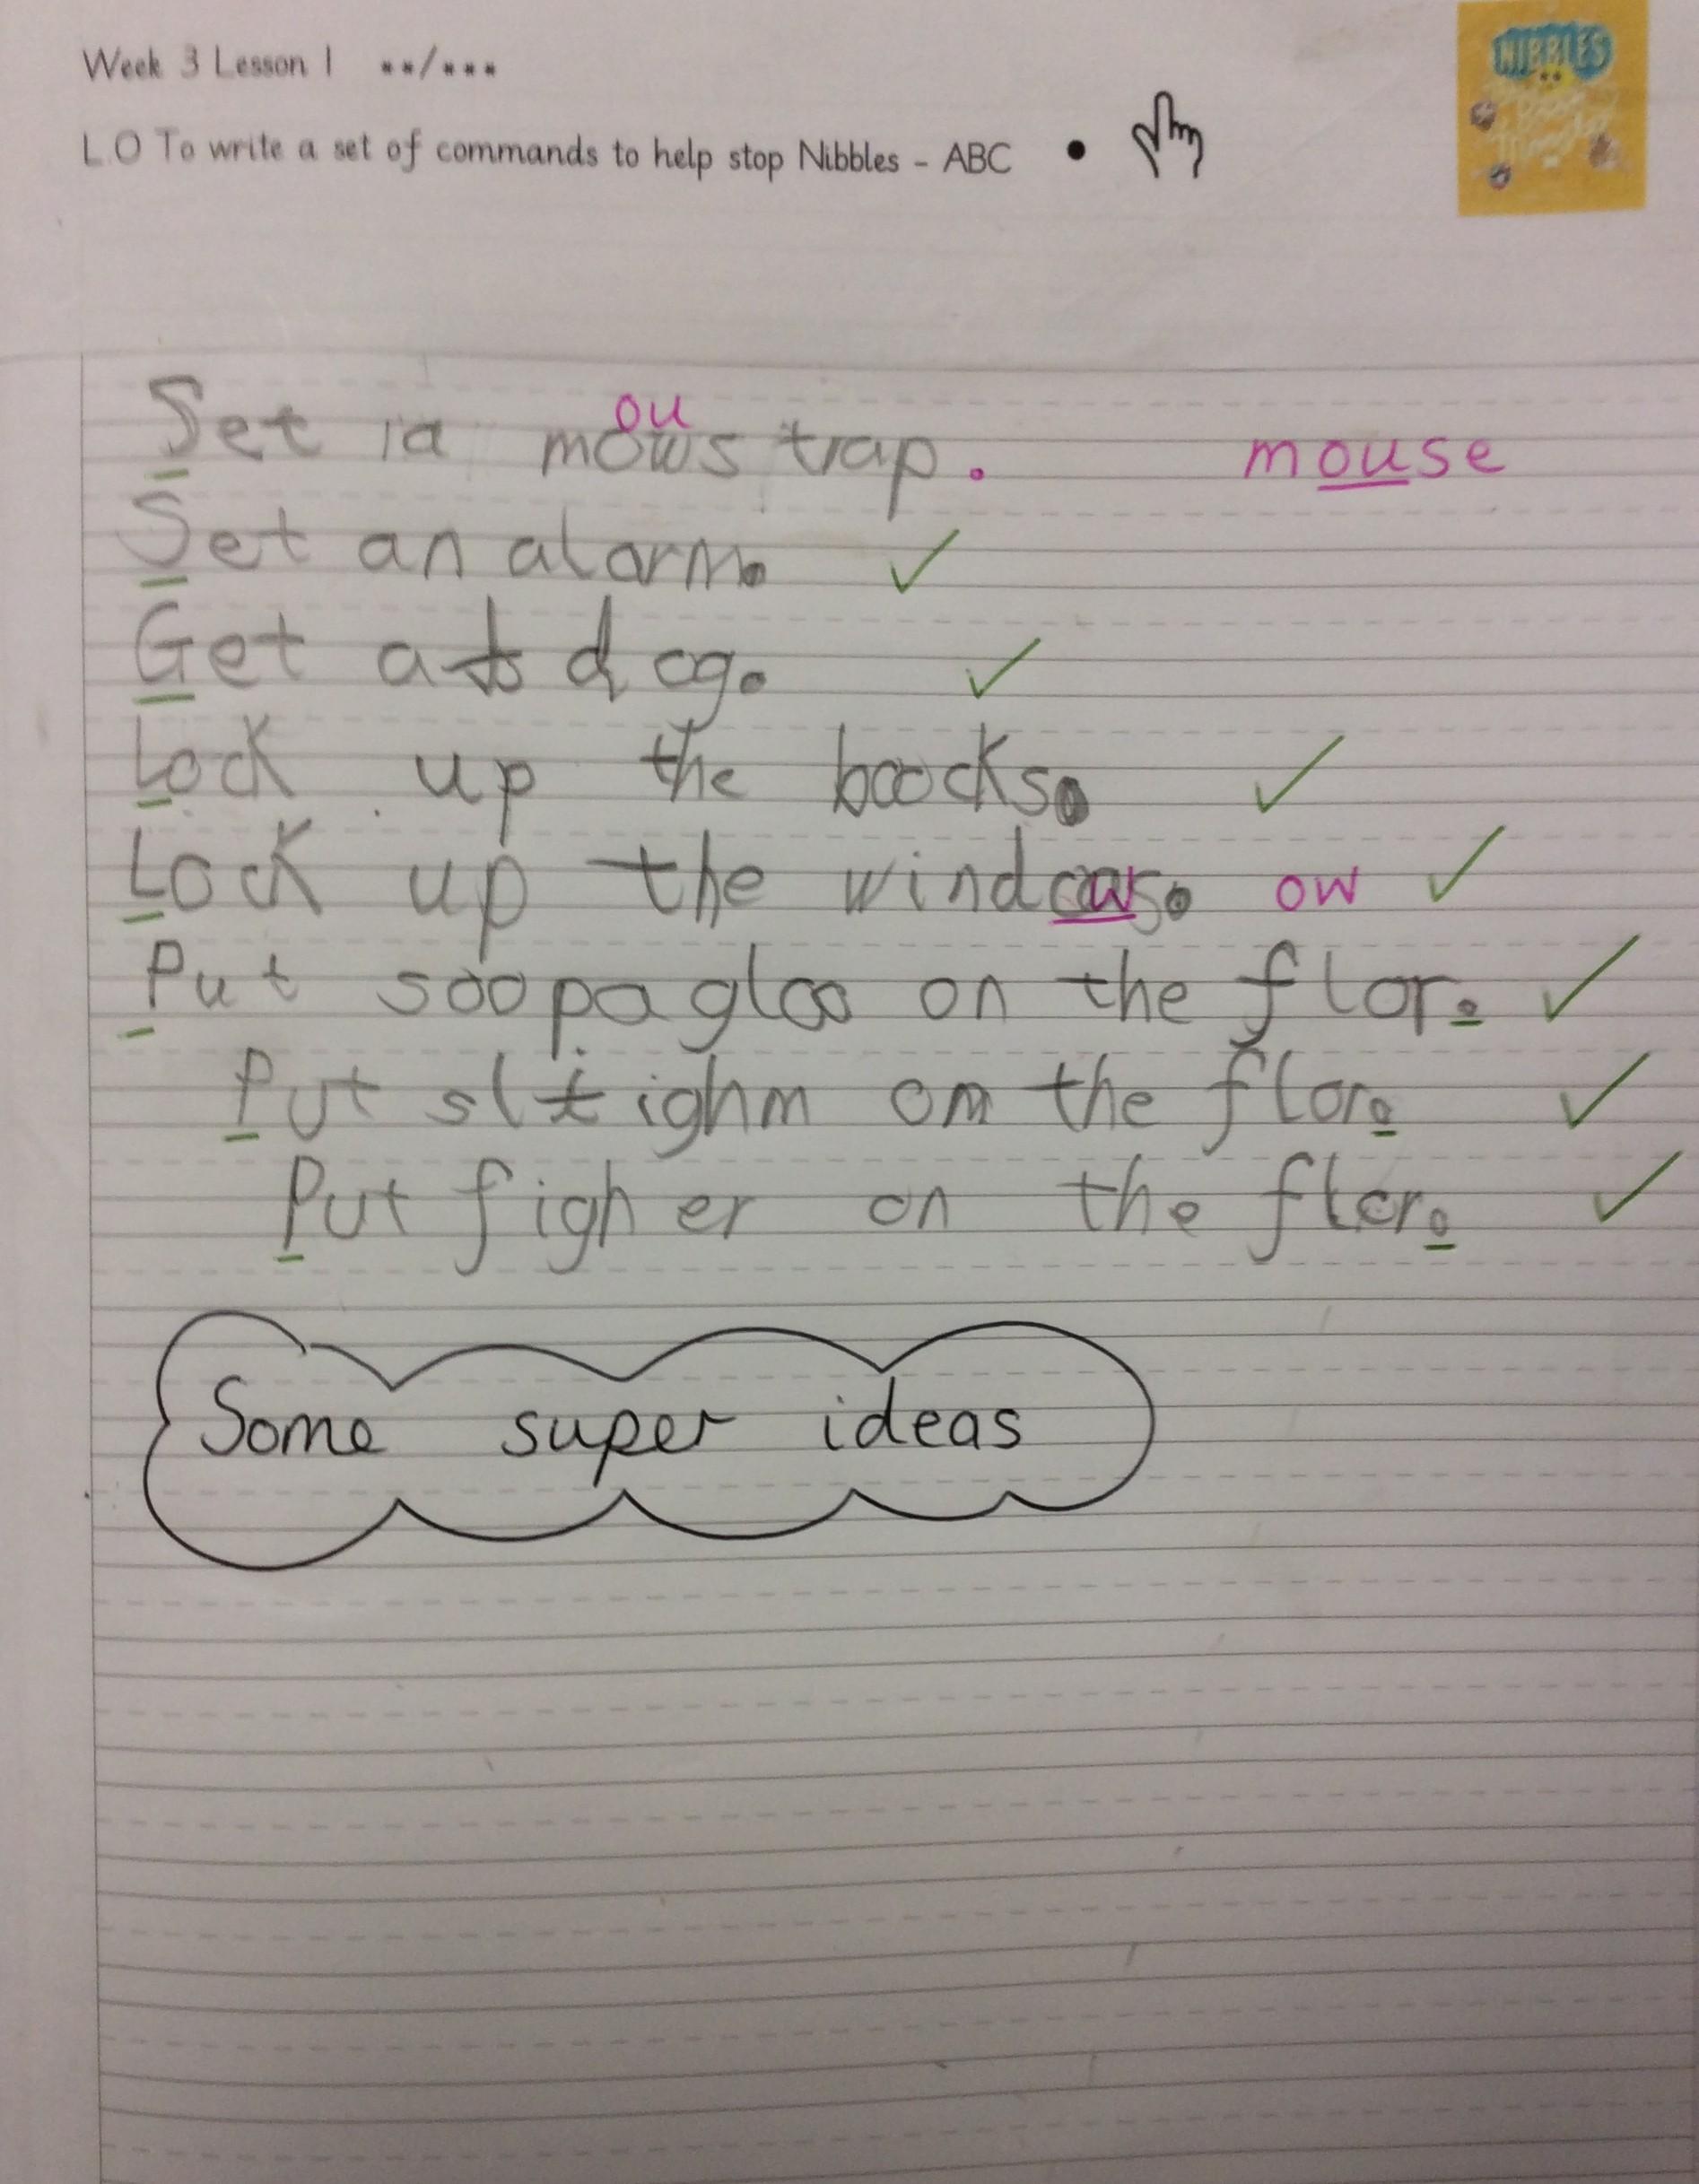 Week 3 Lesson 1 **/***
L.O To write a set of commands to help stop Nibbles - ABC •
NIBBLES
ou
Set a mows trap. mouse
Set an alarm.
Get a dog.
Lock up the boocks.
Lock up the windows. ow
Put soopa gloo on the flor.
Put slighm on the flor.
Put figher on the flor.
Some super ideas